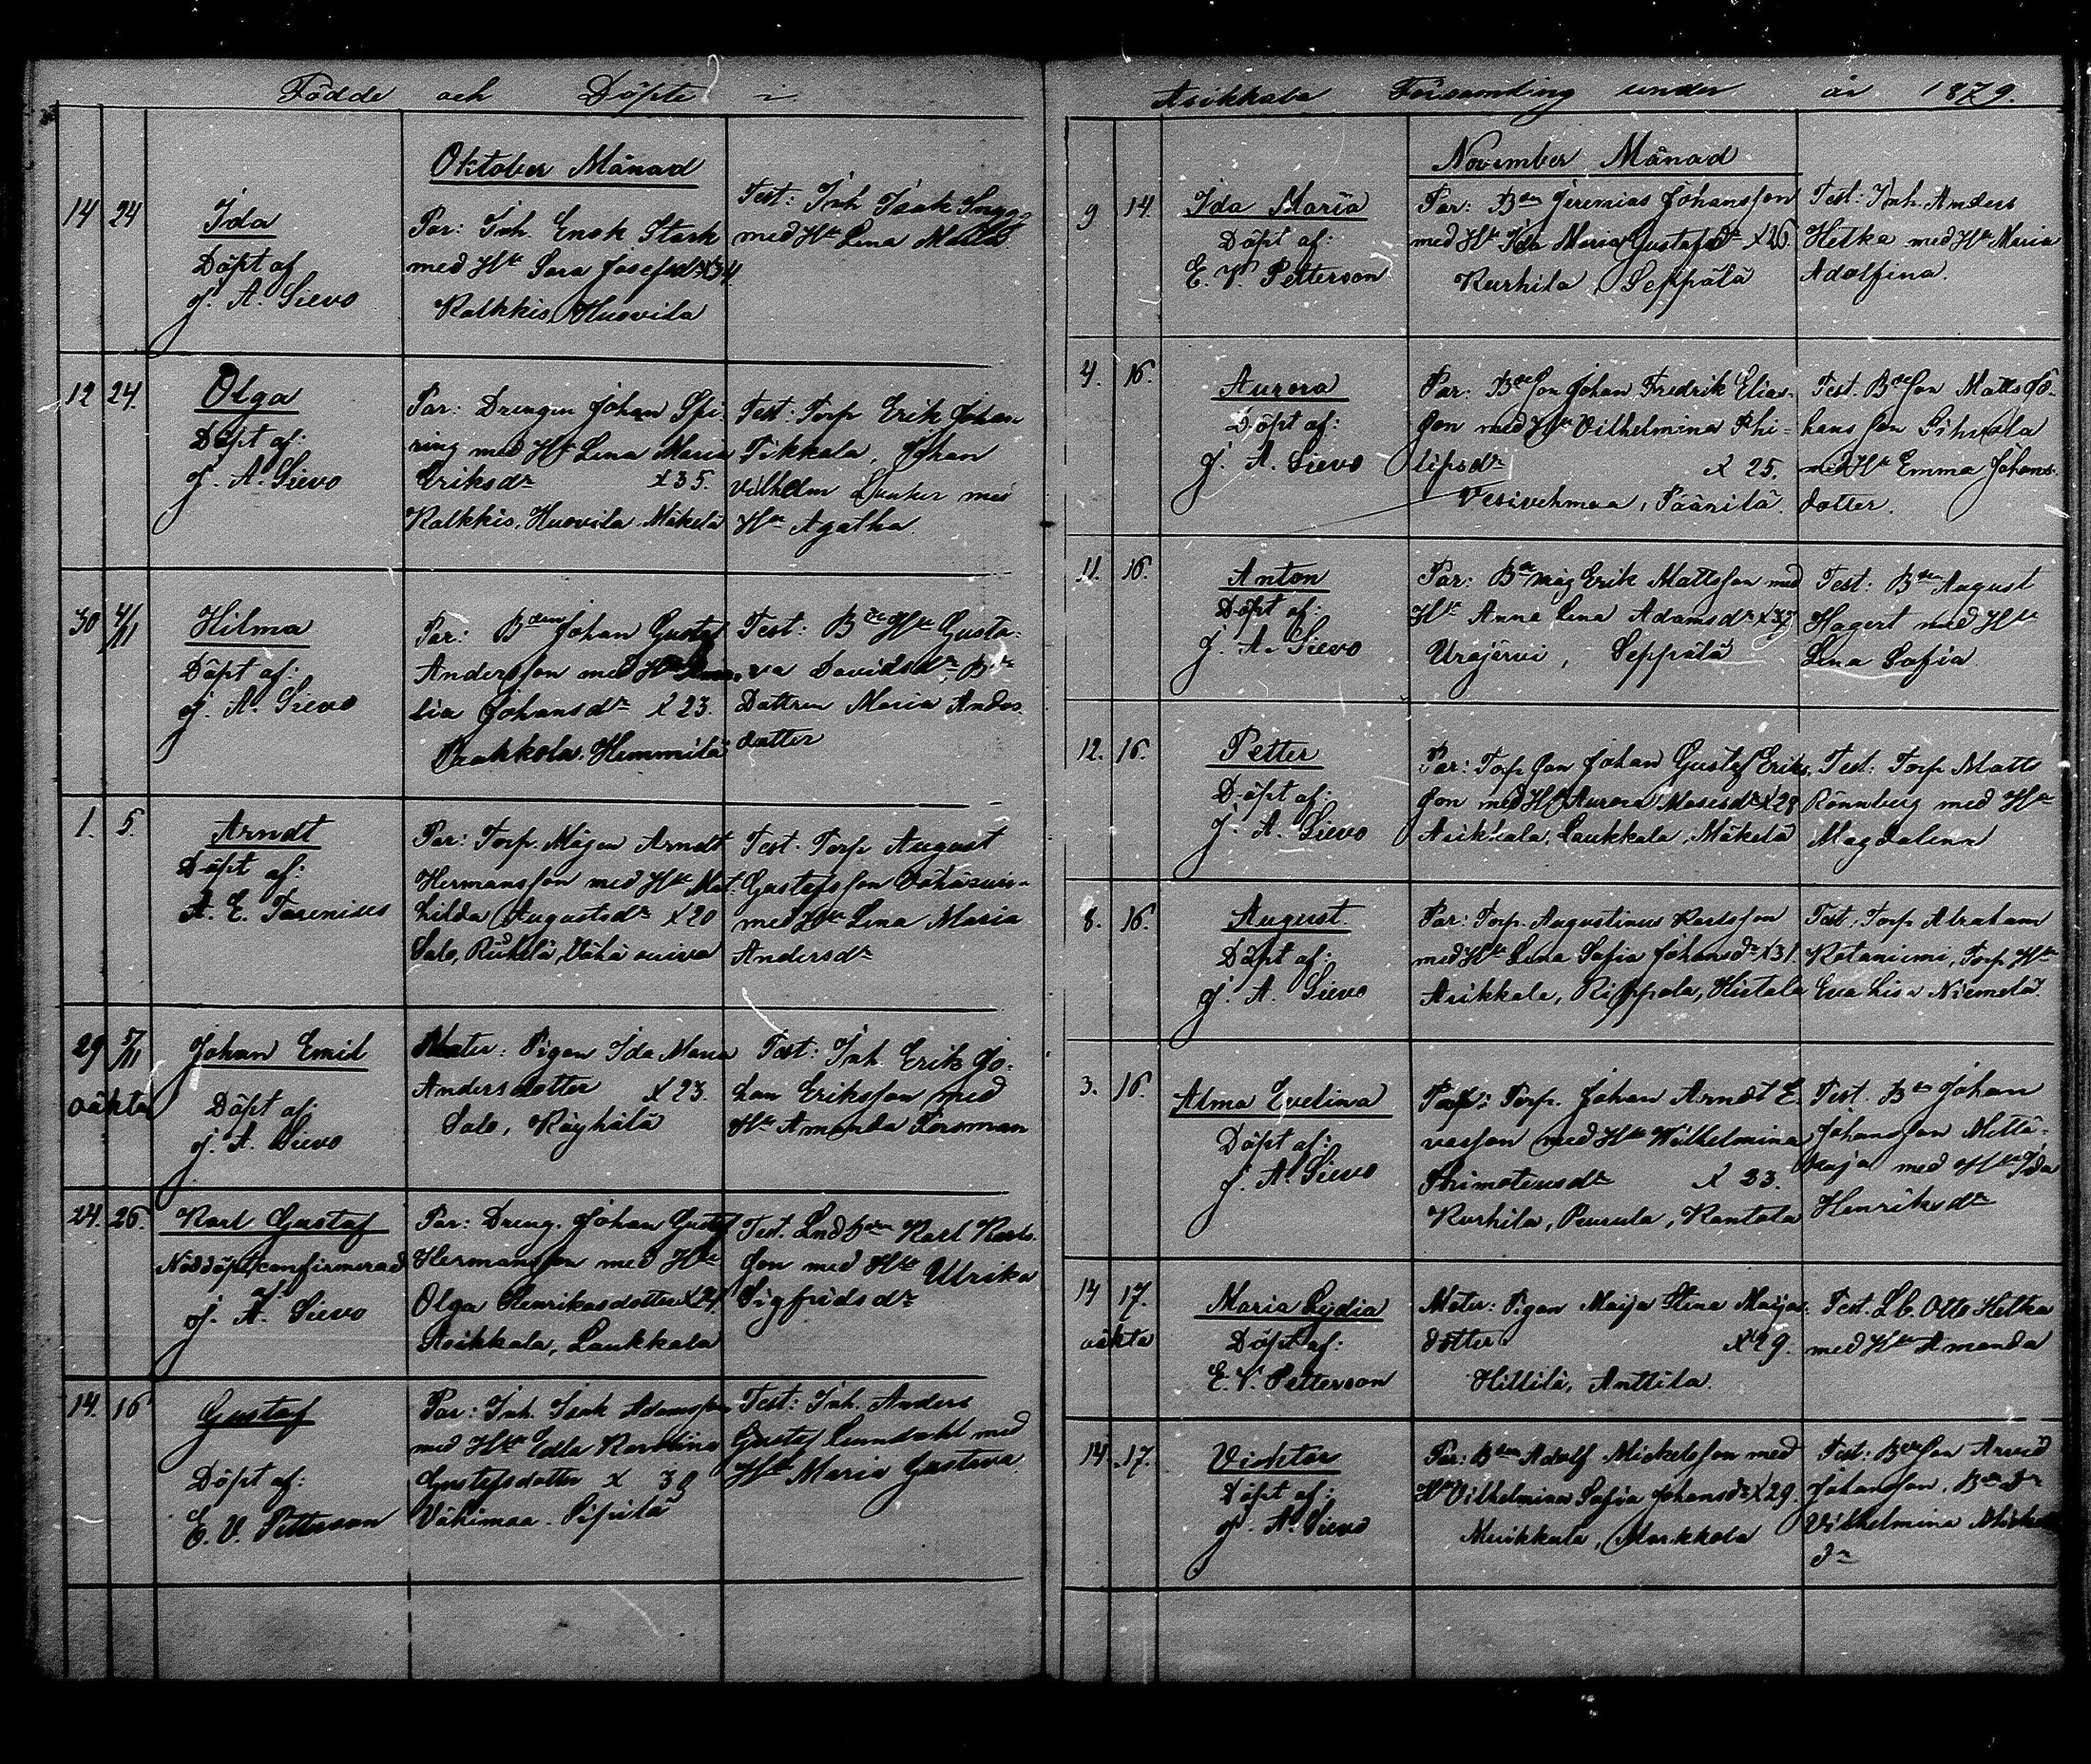 Födde och Döpte i
Oktober Månad
14 24
Ida
Döpt af
J. A. Sievo
Par: Inh. Enok Stark
med Hu Sara Josefsdr x 34.
Kalkkis, Huovila
Test: Inh Isak
med Hu Lena
12 24.
Olga
Döpt af:
J. A. Sievo
Par: Drengen Johan Spi-
ring med Hu Lena Maria
Eriksdr x 35.
Kalkkis, Huovila Mäkelä
Test: Torp Erik Johan
Tikkala, Johan
Vilhelm med
Hu Agatha.
30 4/11
Hilma
Döpt af:
J. A. Sievo
Par: Bden Johan Gustaf
Andersson med Hu
lia Johansdr x 23.
Hemmilä
Test: Bde Hu Gusta-
va Davidsdr, Bde
Dottren Maria Anders
dotter
1. 5.
Arndt
Döpt af:
A. E. Tarenius
Par: Torp. Mågen Arndt
Hermansson med Hu Mat-
hilda Augustsdr x 20
Salo, Vähä ruiva
Test. Torp August
Gustafsson
med Hu Lena Maria
Andersdr
29 5/11
oäkta
Johan Emil
Döpt af
J. A. Sievo
Mater: Pigan Ida Maria
Andersdotter x 23.
Salo, Räyhälä
Test: Inh. Erik Jo-
han Eriksson med
Hu Amanda Forsman
24. 26.
Karl Gustaf
Nöddöpt, confirmerad
af
J. A. Sievo
Par: Dreng. Johan Gustaf
Hermansson med Hu
Olga Henriksdotter x 24.
Asikkala, Laukkala
Test. Karl Karls-
son med Hu Ulrika
Sigfridsdr
14. 16
Gustaf
Döpt af:
E. V. Petterson
Par: Inh. Isak Adamsson
med Hu Edla Karolina
Gustafsdotter x 30
Vähimaa Sipilä
Test: Inh. Anders
Gustaf Lundahl med
Hu Maria Gustava.
Asikkala Församling under år 1879.
November Månad
9 14.
Ida Maria
Döpt af:
E. V. Petterson
Par: Bden Jeremias Johansson
med Hu Ida Maria Gustafsdr x 26
Kurhila, Seppälä
Test: Inh. Anders
Helka med Hu Maria
Adolfina.
4. 16.
Aurora
Döpt af:
J. A. Sievo
Par: Bde Son Johan Fredrik Elias-
son med Hu Vilhelmina Phi-
lipsdr x 25.
Vesivehmaa, Päänilä.
Test. Bde Son Matts Jo-
hansson
med Hu Emma Johans-
dotter.
11. 16.
Anton
Döpt af:
J. A. Sievo
Par: Bde Måg Erik Mattsson med
Hu Anna Lena Adamsdr x 37
Urajärvi, Seppälä
Test: Bden August
Hagert med Hu
Lena Sofia
12. 16.
Petter
Döpt af:
J. A. Sievo
Par: Torp. Son Johan Gustaf Eriks-
son med Hu Aurora Mosesdr x 28
Asikkala, Laukkala, Mäkelä
Test: Torp Matts
Rönnberg med Hu
Magdalena
8. 16.
August.
Döpt af:
J. A. Sievo
Par: Torp. Augustinus Karlsson
med Hu Lena Sofia Johansdr x 31.
Asikkala, Rippala, Hietala
Test: Torp Abraham
Kotaniemi, Torp Hu
Eva Lisa Niemelä.
3. 16.
Alma Evelina
Döpt af:
J. A. Sievo
Par: Torp. Johan Arndt E-
vasson med Hu Wilhelmina
Thimoteusdr x 33.
Kurhila, Pursula, Kantola
Test. Bden Johan
Johansson
med Hu Ida
Henriksdr
14 17.
oäkta
Maria Lydia
Döpt af:
E. V. Petterson
Mater: Pigan Maija Stina Maijas-
dotter x 29.
Hillilä, Anttila.
Test. Lb. Otto Helka
med Hu Amanda
14. 17.
Viktor
Döpt af:
J. A. Sievo
Par: Bden Adolf Mickelsson med
Hu Vilhelmina Sofia Johansdr x 29.
Muikkula, Markkola
Test: Bde Son Arvid
Johansson, Bde Dr
Vilhelmina
dr